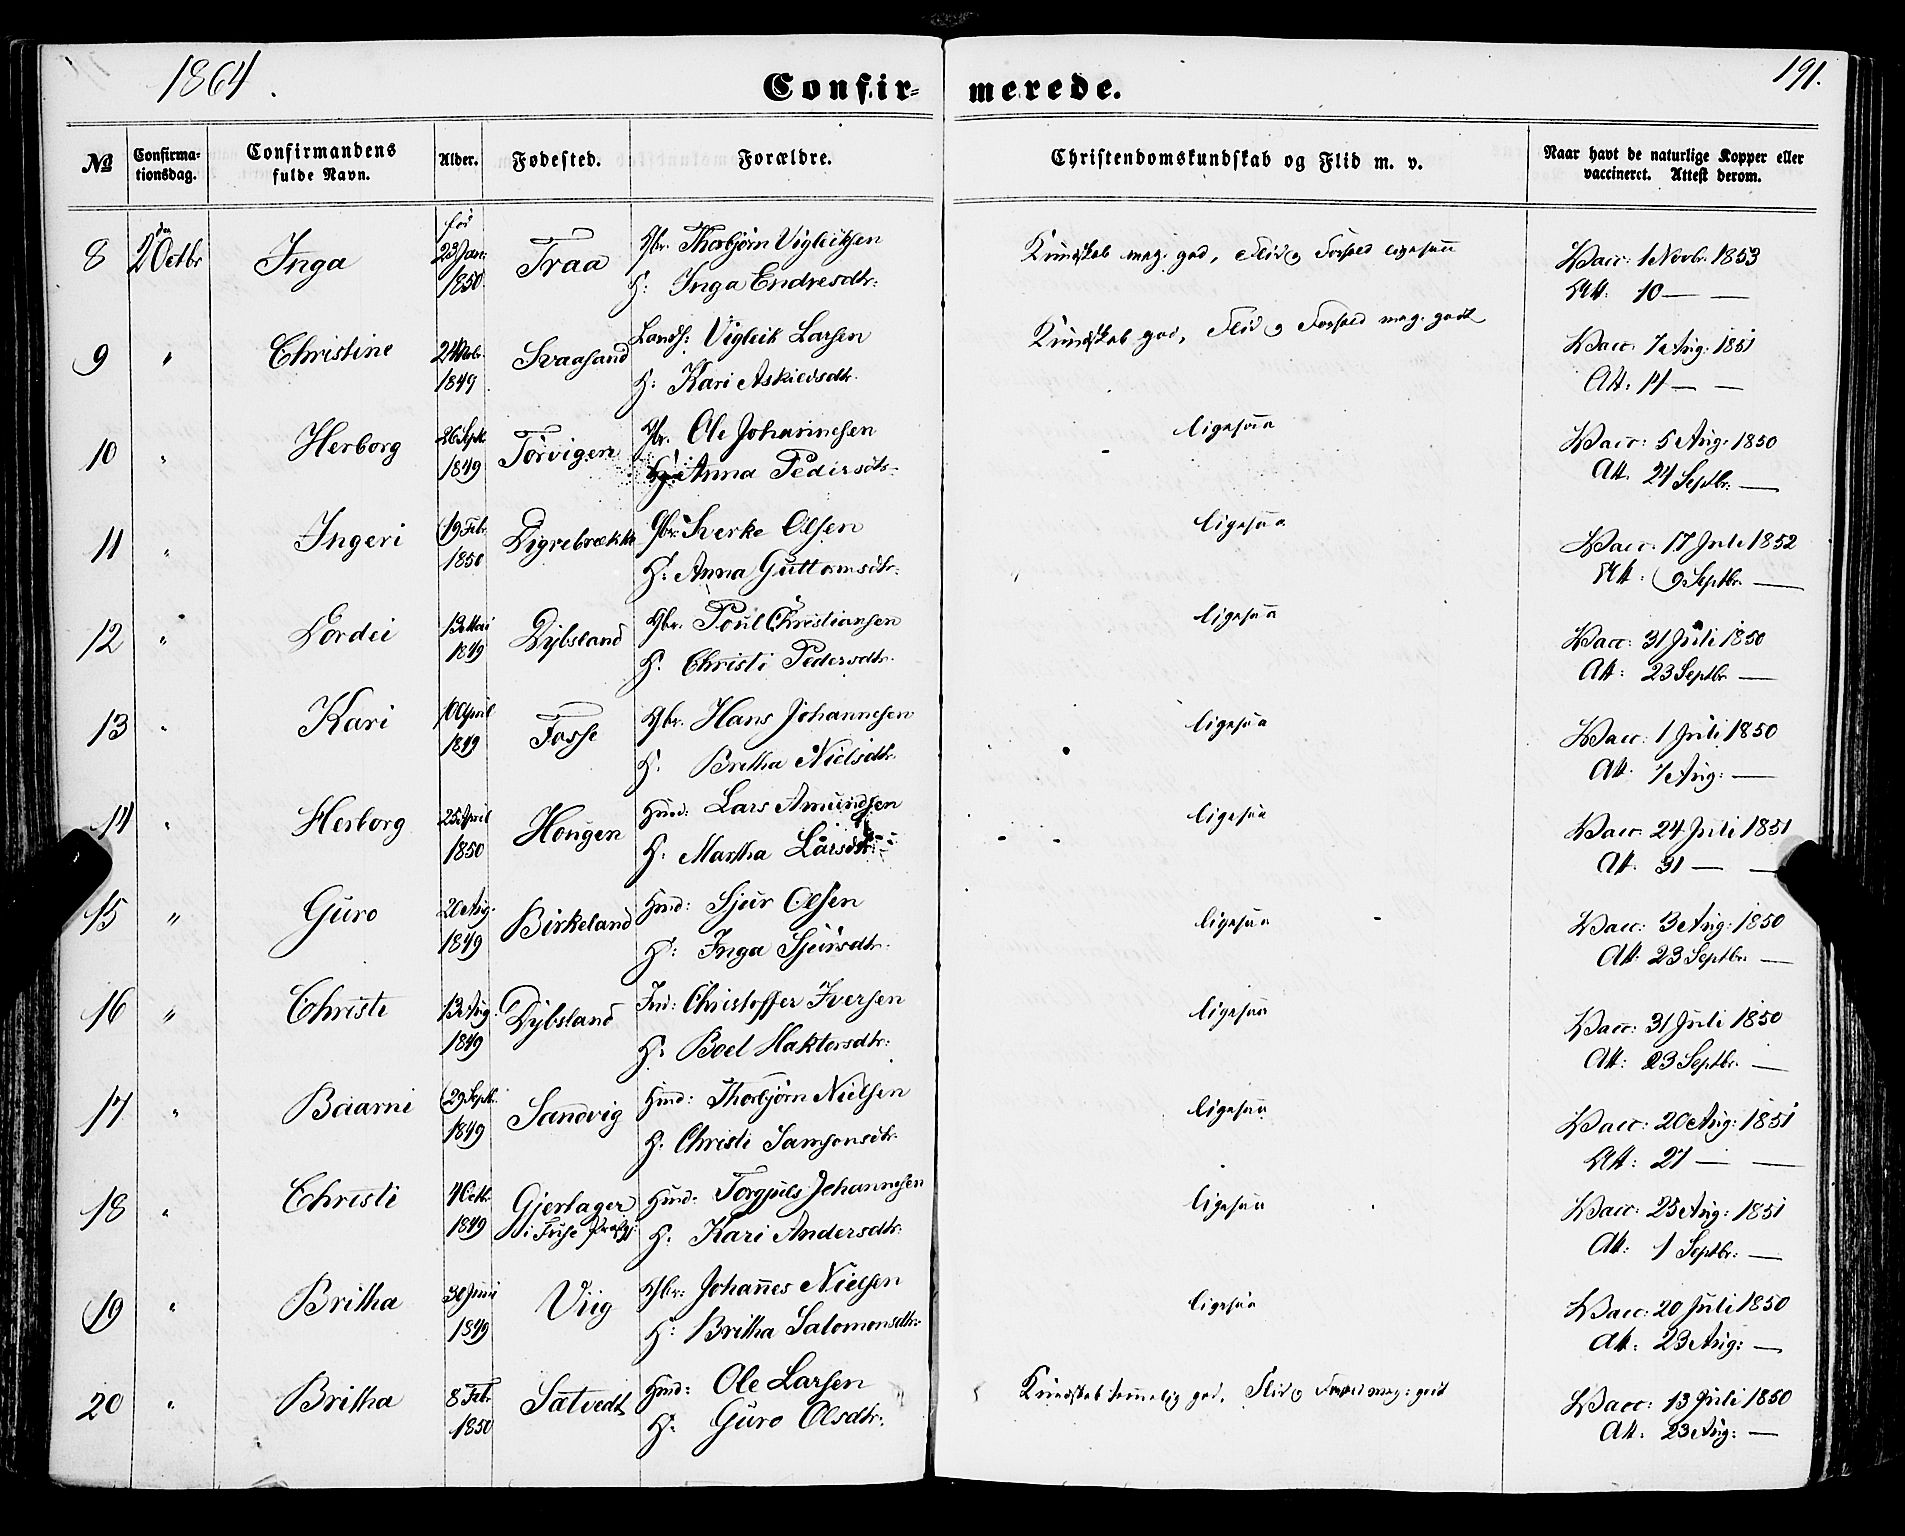 1864.
Confir- merede.
191.
No
Confirma-
tionsdag.
Confirmandens
fulde Navn.
Alder.
Fødested.
Forældre.
Christendomskundskab og Flid m. v.
Naar havt de naturlige Kopper eller
vaccineret. Attest derom.
8 2den Octbr Inga 23 Jan. 1850 Traa Gbr. Thorbjörn Vigleiksen
H: Inga Endresdtr:
Kundskab meg. god, Flid og Forhold ligesaa
Vacc: 1 Novbr. 1853
Att: 10 — —
9 " Christine 1849 Svaasand Vigleik Larsen
H: Kari Askildsdtr.
Kundskab god, Flid og Forhold meg. godt
Vacc. 7 Aug: 1851
Att: 14 — —
10 " Herborg 26 Sept. 1849 Torvigen Gbr. Ole Johannesen
H: Anna Pedersdtr.
ligesaa
Vacc: 5 Aug: 1850
Att. 24 Septbr. —
11 " Ingeri 19 Febr. 1850 Digrebrække Gbr. Sverke Olsen
H: Anna Guttormsdtr.
ligesaa
Vacc. 17 Juli 1852
Att: 9 Septbr. —
12 " Lordei 13 Mai 1849 Dybsland Gbr. Poul Christiansen
H. Christi Pedersdtr.
ligesaa
Vacc: 31 Juli 1850
Att: 23 Septbr. —
13 " Kari April 1849 Fosse Gbr. Hans Johannesen
H. Britha Nielsdtr.
ligesaa
Vacc: 1 Juli 1850
Att. 7 Aug: —
14 " Herborg 25 April 1850 Hougen Huusd: Lars Amundsen
H. Martha Larsdtr:
ligesaa
Vacc. 24 Juli 1851
Att. 31 — —
15 " Guro Aug. 1849 Birkeland Huusd: Sjur Olsen
H: Inga Sjursdtr.
ligesaa
Vacc: 3 Aug: 1850
Att: 23 Septbr. —
16 " Christi 13 Aug. 1849 Dybsland Ind: Christoffer Iversen
H: Boel Haktorsdtr:
ligesaa
Vacc: 31 Juli 1850
Att: 23 Septbr. —
17 " Baarni 29 Septb. 1849 Sandvig Huusd: Thorbjörn Nielsen
H. Christi Samsonsdtr.
ligesaa
Vacc: 20 Aug: 1851
Att: 27 — —
18 " Christi 4 Octb. 1849 Gjerlager
i Fuse Præstgj: Huusd: Torgjuls Johannesen
H. Kari Andersdtr.
ligesaa
Vacc: 25 Aug: 1851
Att: 1 Septbr: —
19 " Britha 30 Juni 1849 Viig Gbr: Johannes Nielsen
H: Britha Salomonsdtr.
ligesaa
Vacc: 20 Juli 1850
Att: 23 Aug: —
20 " Britha 8 Feb. 1850 Sætvedt Huusd: Ole Larsen
H: Guro Olsdtr.
Kundskab temmelig god, Flid og Forhold meg: godt
Vacc: 13 Juli 1850
Att: 23 Aug: —